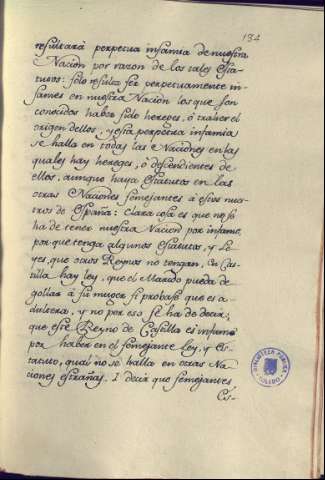 134
resultará perpetua infamia de nuestra
Nacion por razon de los tales Esta-
tutos: solo resulta ser perpetuamente in-
fames en nuestra Nacion los que son
conocidos haber sido hereges, ó traher el
origen dellos, y esta perpetua infamia
se halla en todas las Naciones en las
quales hay hereges, ó descendientes de
ellos, aunque haya Estatutos en las
otras Naciones semejantes á estos nues-
tros de España: Clara cosa es que no se
ha de tener nuestra Nacion por infame,
por que tenga algunos Estatutos, y Le-
yes, que otros Reynos no tengan. En Cas-
tilla hay ley, que el Marido pueda de-
gollar á su muger si probase que es a-
dultera, y no por eso se ha de decir,
que este Reyno de Castilla es infame
por haber en el semejante ley, y es-
tatuto, qual no se halla en otras Na-
ciones estrañas. I decir que semejantes
Es-
BIBLIOTECA PUBLICA
TOLEDO